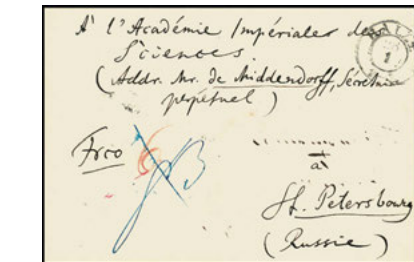 A' l'Académie Impériales des
Sciences.
(Addr. Mr. de Middendorff, Secrétaire
perpétuel)
Frco
à
St. Petersbourg
(Russie)